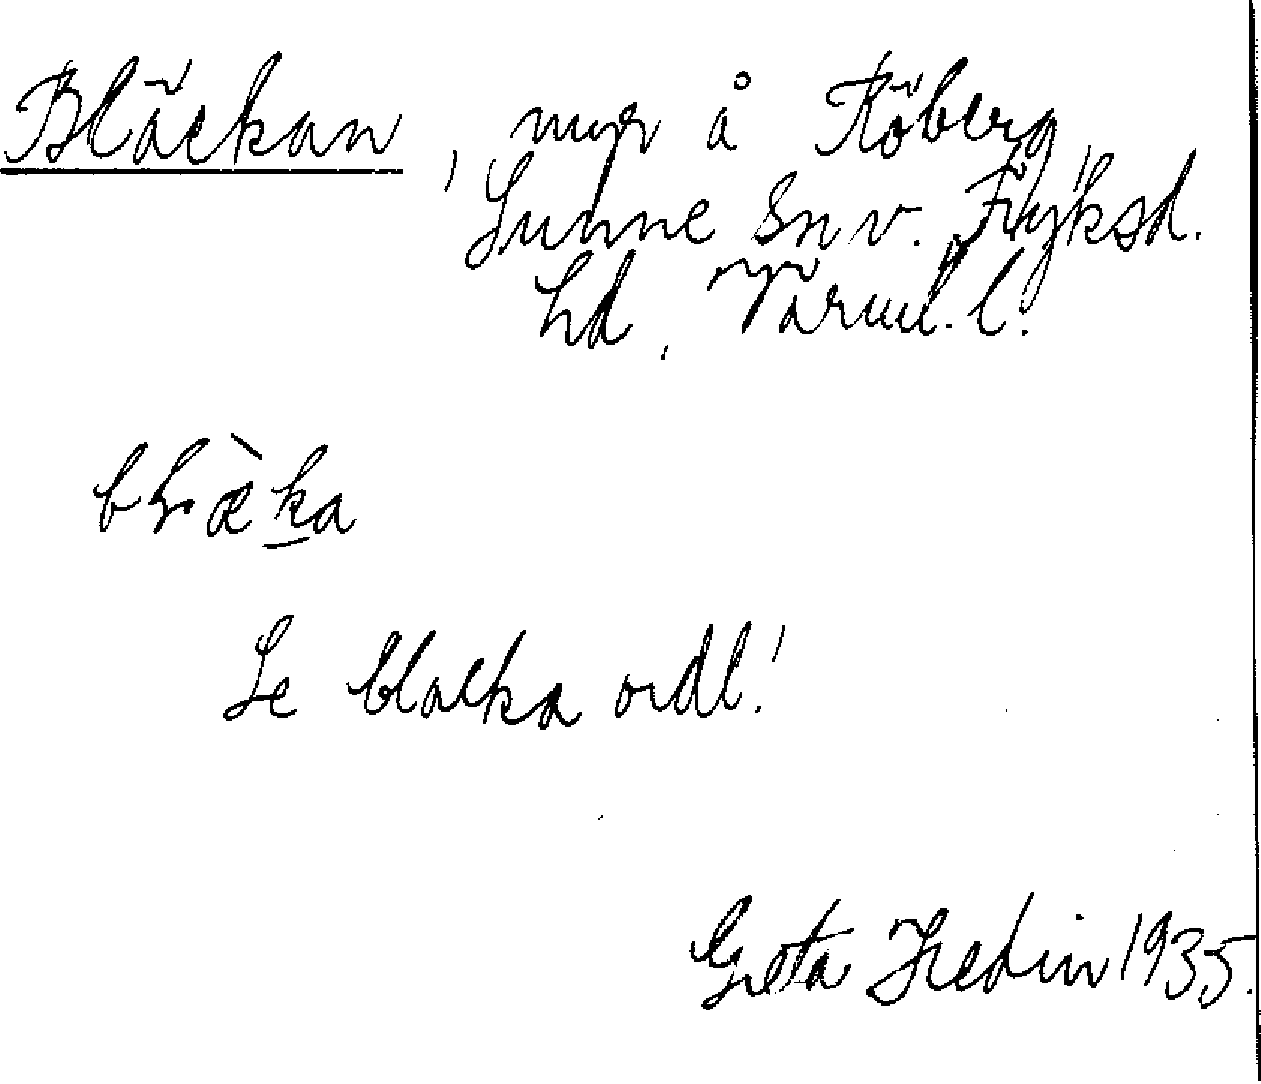 Bläckan, myr å Röberg,
Sunne sn v. Fryksd.
hd, Värml. l.
blæ̀ka
Se blacka ordl.!
Greta Hedin 1935.